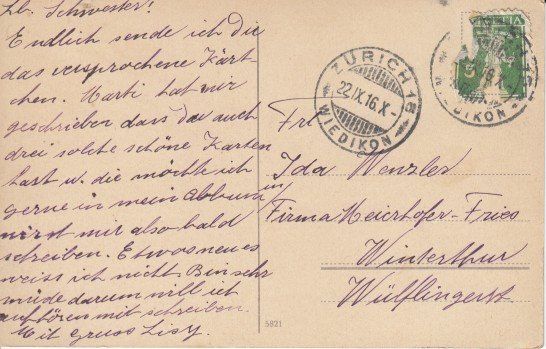 Lb. Schwester!
Endlich sende ich die
das versprochene Kärt-
chen. Marti hat mir
geschrieben dass du auch
drei solche schöne Karten
hast u. die möchte ich
gerne in mein Abbum
wirst mir also bald
schreiben. Etwas neues
weiss ich nicht Bin sehr
müde darum will ich
aufhören mit schreiben.
Mit Gruss Lisy.
ZÜRICH 18
22.IX.16.X-
WIEDIKON
HELVETIA
DIKON
Frl
Ida Wenzler
in
Firma Meierhofer-Fries
Winterthur
Wülflingerst
5821